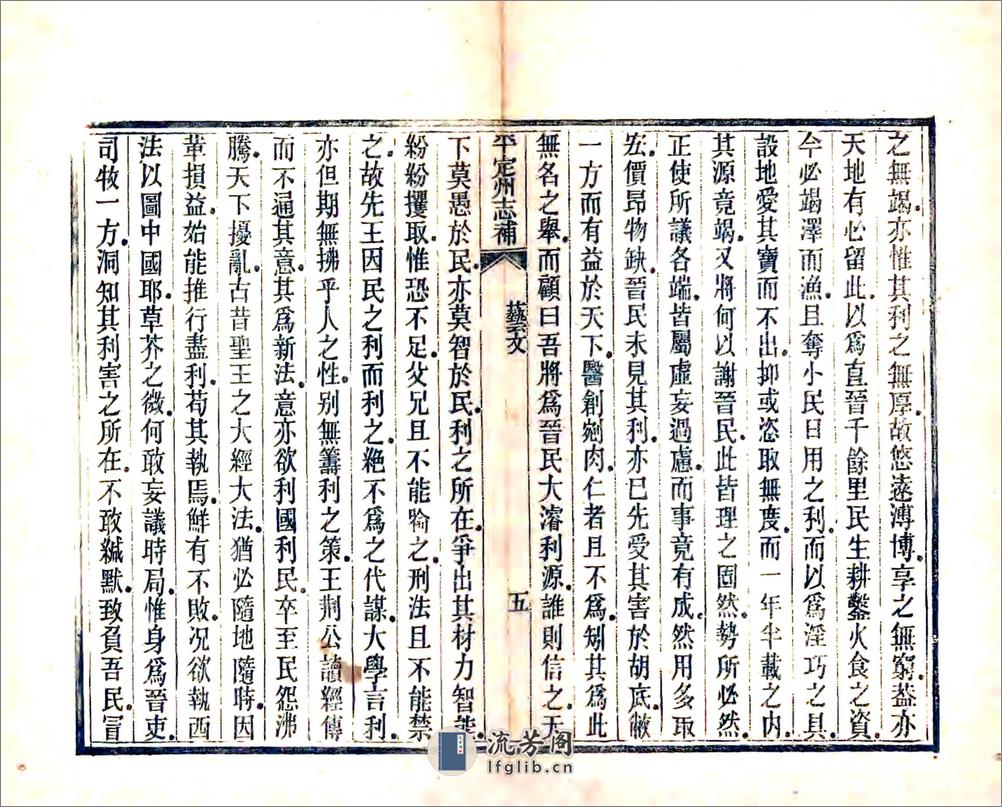 之無竭亦惟其利之無厚故悠遠溥博享之無窮葢亦
天地有必留此以爲直晉千餘里民生耕鑿火食之資
今必竭澤而漁且奪小民日用之利而以爲淫巧之具
設地愛其寶而不出抑或恣取無度而一年半載之内
其源竟竭又將何以謝晉民此皆理之固然勢所必然
正使所議各端皆屬虛妄過慮而事竟有成然用多取
宏價昂物缺晉民未見其利亦已先受其害於胡底敝
一方而有益於天下醫創剜肉仁者且不爲矧其爲此
無名之舉而顧曰吾將爲晉民大濬利源誰則信之天
平定州志補 藝文 五
下莫愚於民亦莫智於民利之所在爭出其材力智能
紛紛攫取惟恐不足父兄且不能喻之刑法且不能禁
之故先王因民之利而利之絶不爲之代謀大學言利
亦但期無拂乎人之性别無籌利之策王荆公讀經傳
而不通其意其爲新法意亦欲利國利民卒至民怨沸
騰天下擾亂古昔聖王之大經大法猶必隨地隨時因
革損益始能推行盡利苟其執焉鮮有不敗况欲執西
法以圖中國耶草芥之微何敢妄議時局惟身爲晉吏
司牧一方洞知其利害之所在不敢緘默致負吾民冒
流芳阁
lfglib.cn